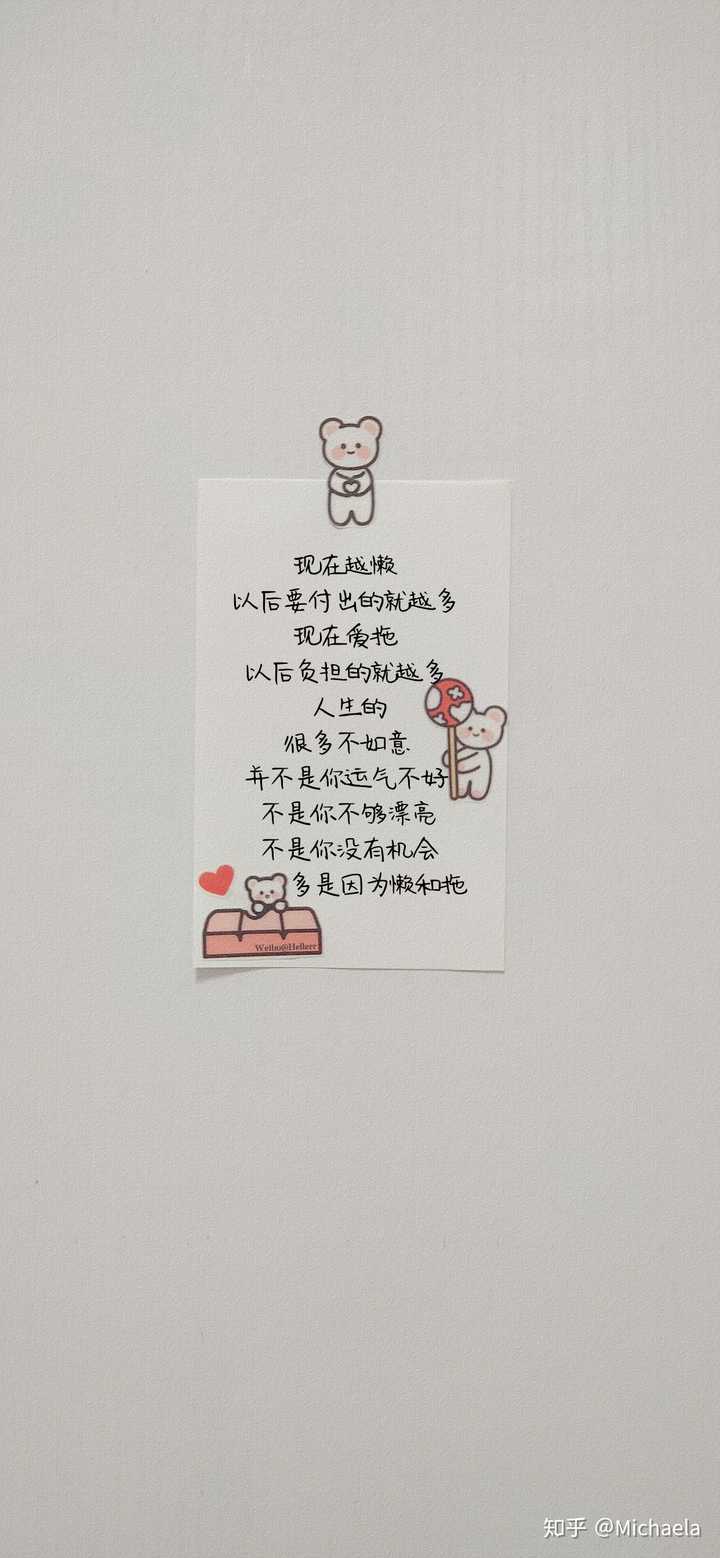 现在越懒
以后要付出的就越多
现在爱拖
以后负担的就越多
人生的
很多不如意
并不是你运气不好
不是你不够漂亮
不是你没有机会
多是因为懒和拖
Weibo@Hellerr
知乎 @Michaela